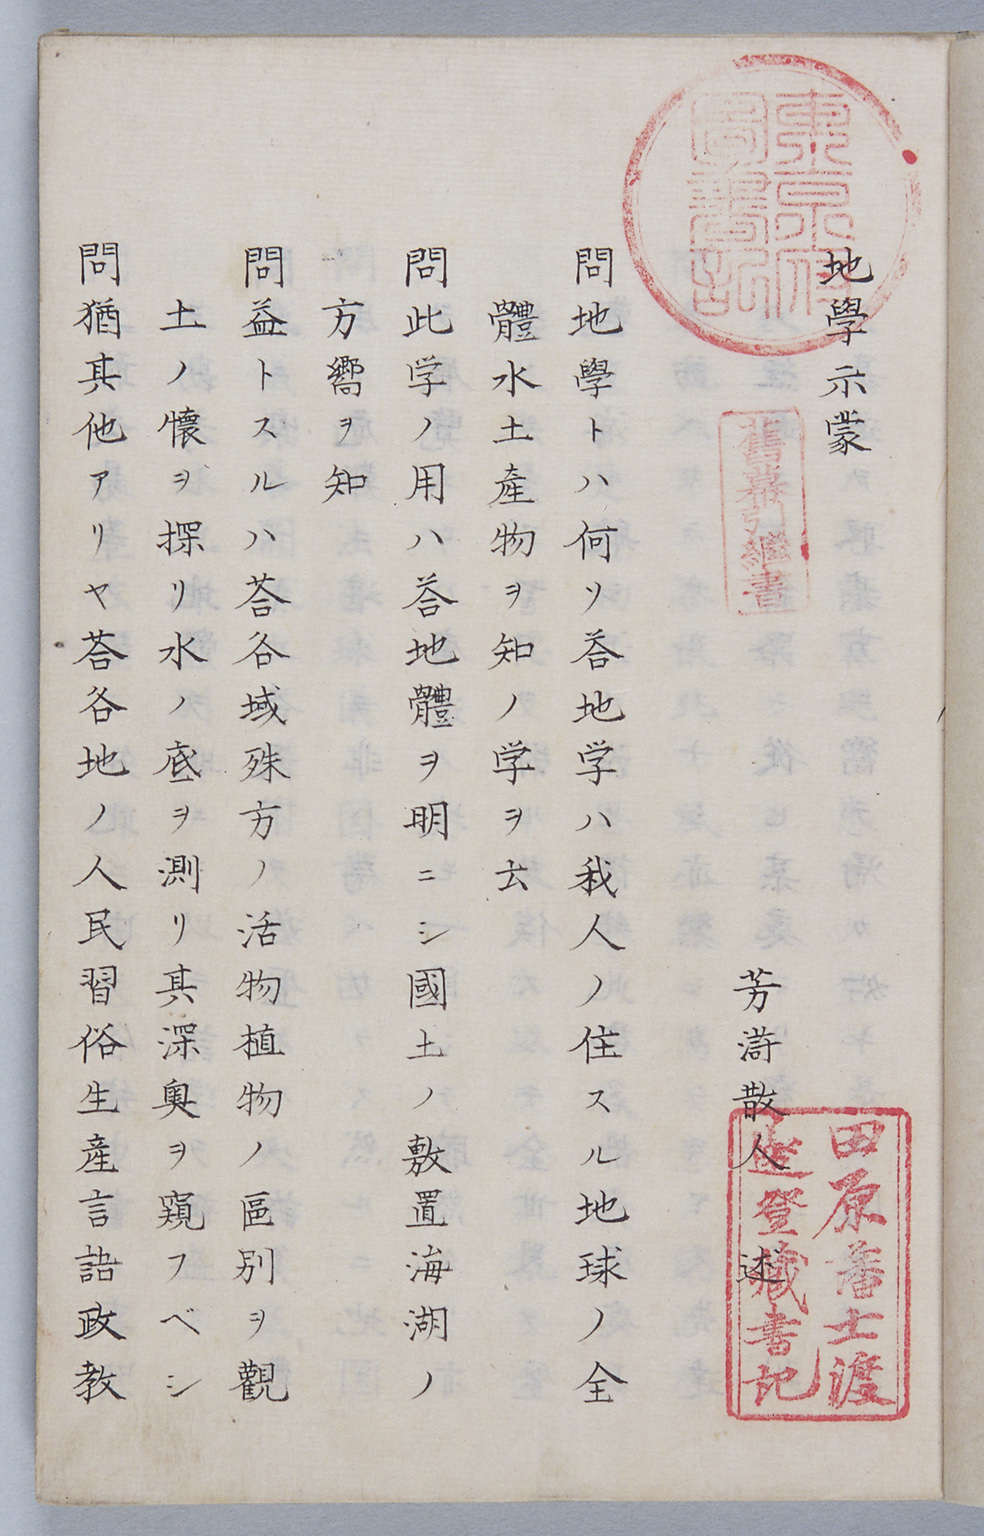 地學示蒙
芳滸散人　述
問地學トハ何ソ荅地学ハ我人ノ住スル地球ノ全
體水土産物ヲ知ノ学ヲ云
問此学ノ用ハ荅地體ヲ明ニシ國土ノ敷置海湖ノ
方嚮ヲ知
問益トスルハ荅各域殊方ノ活物植物ノ區別ヲ觀
土ノ懐ヲ探リ水ノ底ヲ測リ其深奥ヲ窺フベシ
問猶其他アリヤ荅各地ノ人民習俗生産言語政教
東京府
圖書記
舊幕引継書
田原藩士渡
邉登藏書記